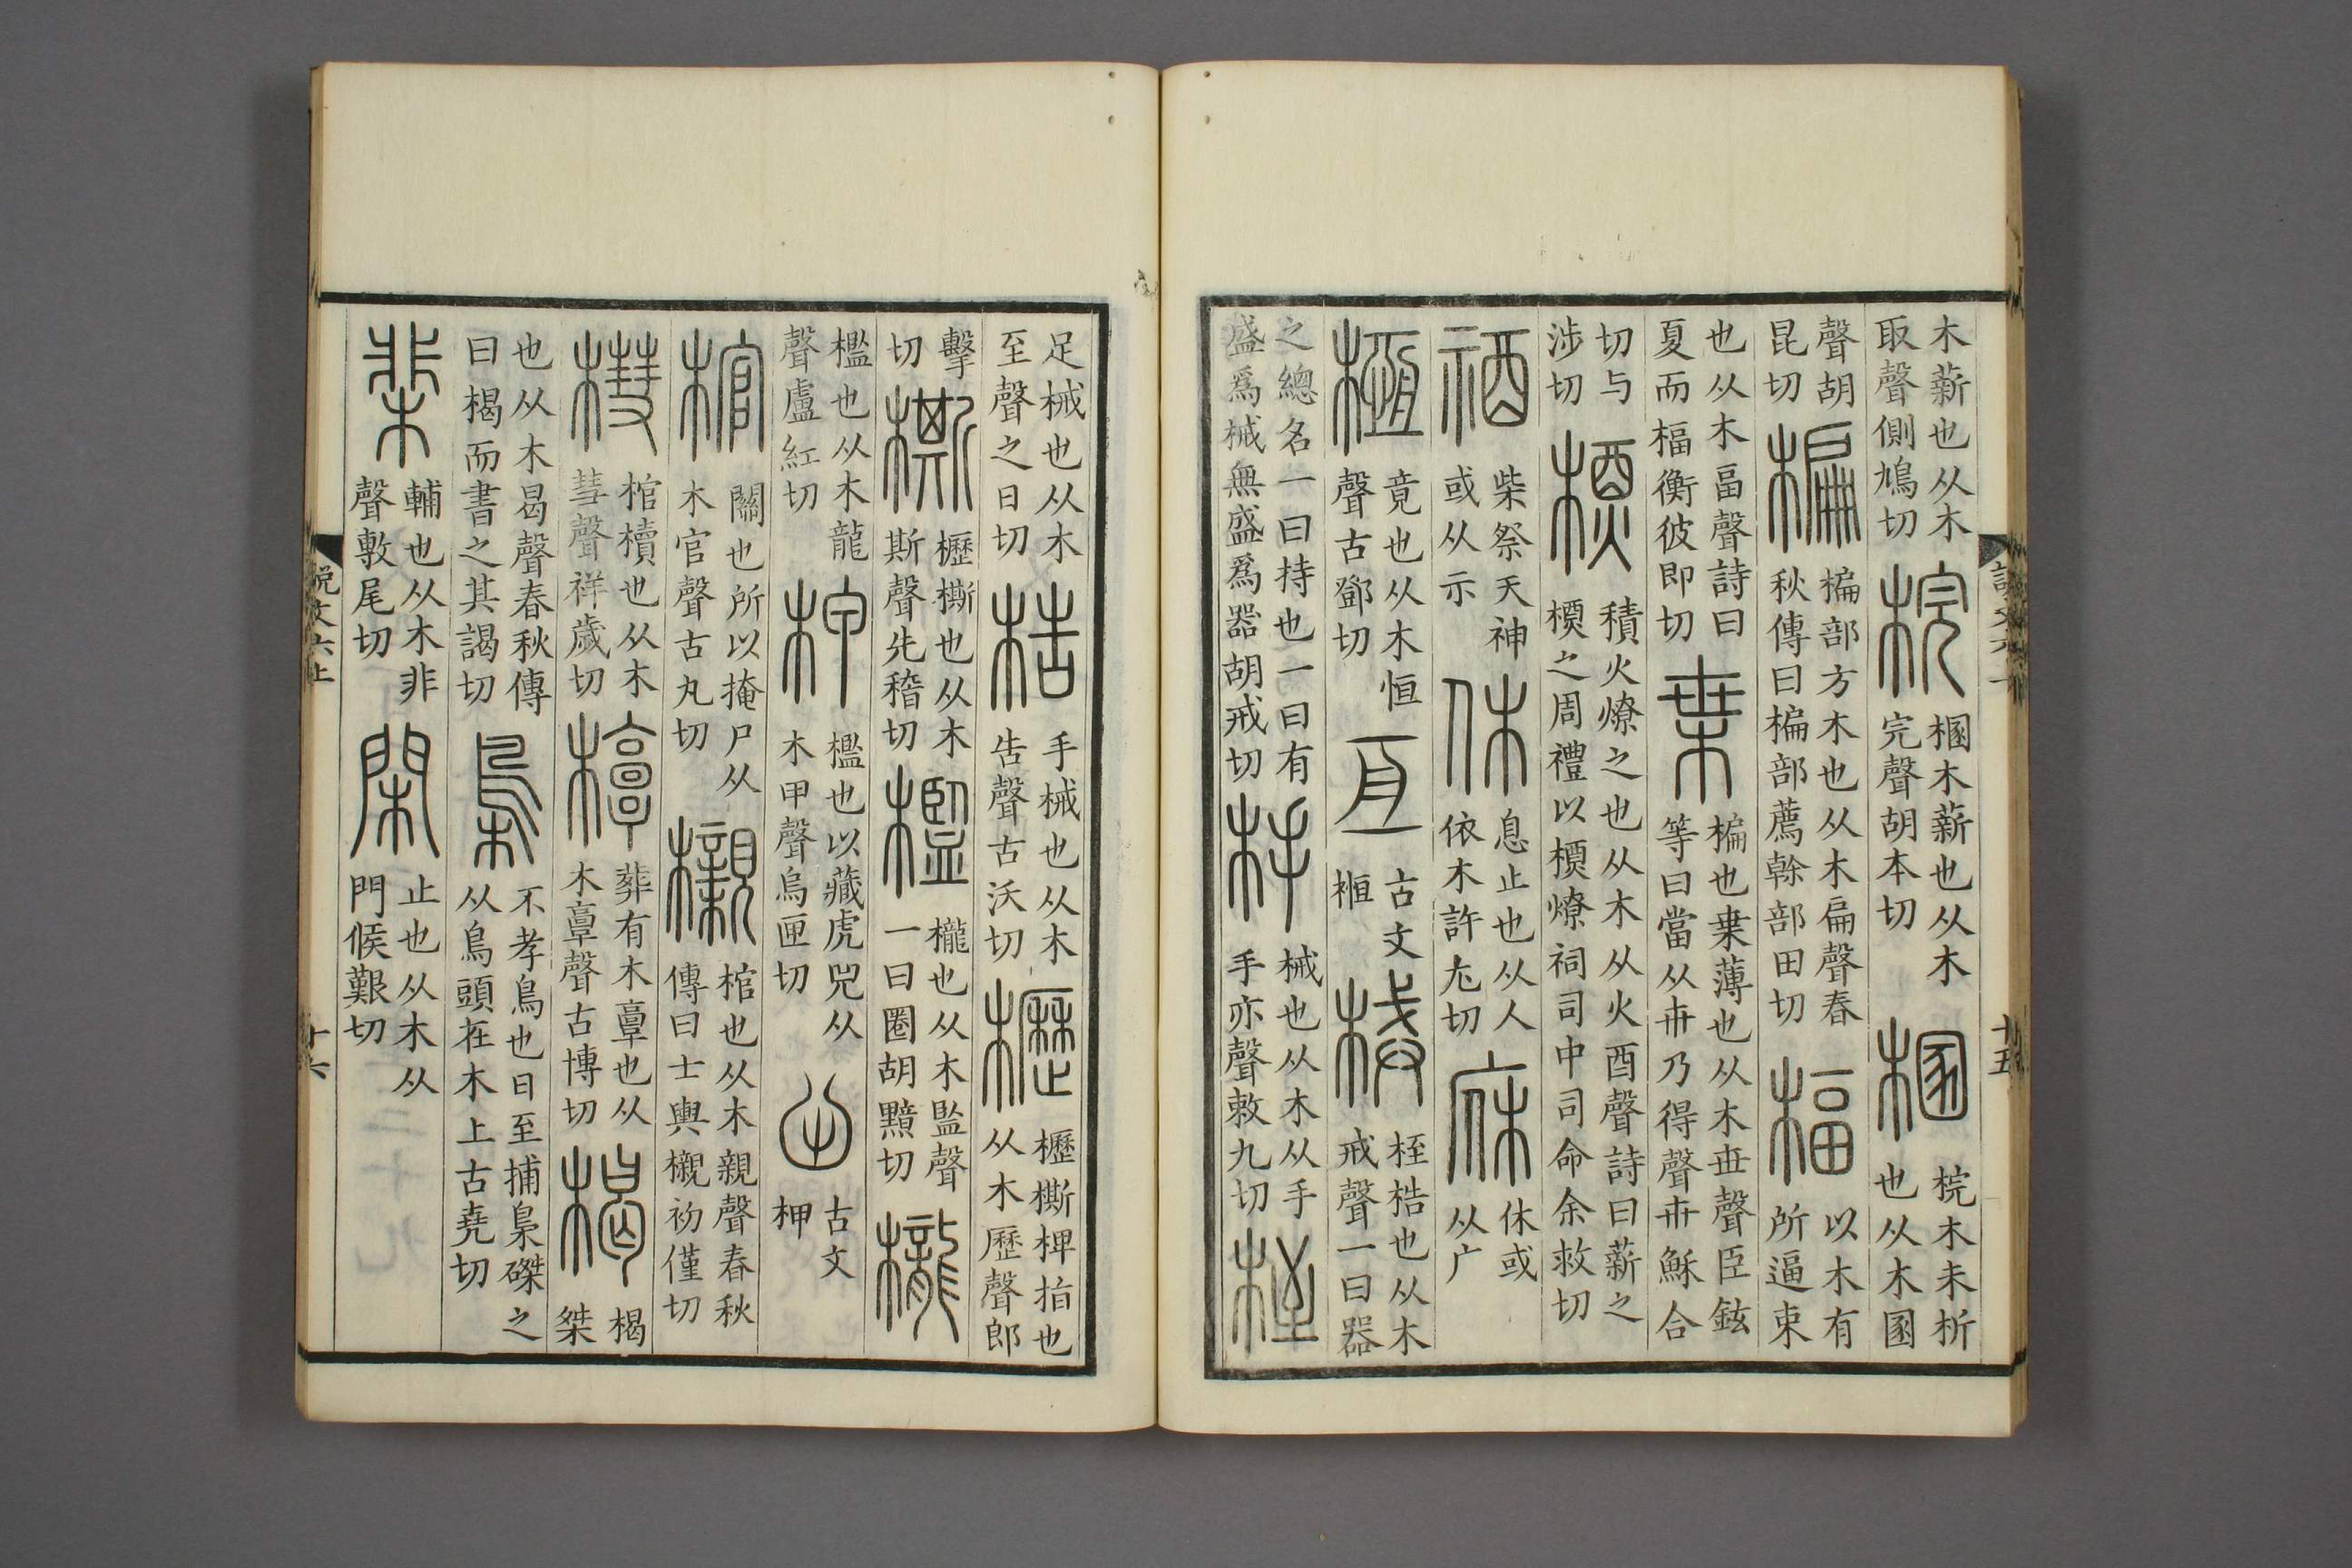 木薪也从木取聲側鳩切梡棞木薪也从木完聲胡本切棞梡木未析也从木圂
聲胡昆切楄楄部方木也从木扁聲春秋傳曰楄部薦榦部田切楅以木有所逼束
也从木畐聲詩曰夏而楅衡彼即切枼楄也枼薄也从木世聲臣鉉等曰當从卉乃得聲卉穌合
切与涉切槱積火燎之也从木从火酉聲詩曰薪之槱之周禮以槱燎祠司中司命余救切
䄏柴祭天神或从示休息止也从人依木許尤切庥休或从广
㮓竟也从木恒聲古鄧切亙古文㮓械桎梏也从木戒聲一曰器
之總名一曰持也一曰有盛爲械無盛爲器胡戒切杽械也从木从手手亦聲敕九切桎
十五
足械也从木至聲之日切梏手械也从木告聲古沃切櫪櫪㯕椑指也从木歷聲郎
擊切㯕櫪㯕也从木斯聲先稽切檻櫳也从木監聲一曰圈胡黤切櫳
檻也从木龍聲盧紅切柙檻也以藏虎兕从木甲聲烏匣切𠙹古文柙
棺關也所以掩尸从木官聲古丸切櫬棺也从木親聲春秋傳曰士輿櫬初僅切
槥棺櫝也从木彗聲祥歲切槨葬有木𩫏也从木𩫏聲古博切楬楬桀
也从木曷聲春秋傳曰楬而書之其謁切梟不孝鳥也日至捕梟磔之从鳥頭在木上古堯切
棐輔也从木非聲敷尾切閑止也从木从門侯艱切
說文六上
十六